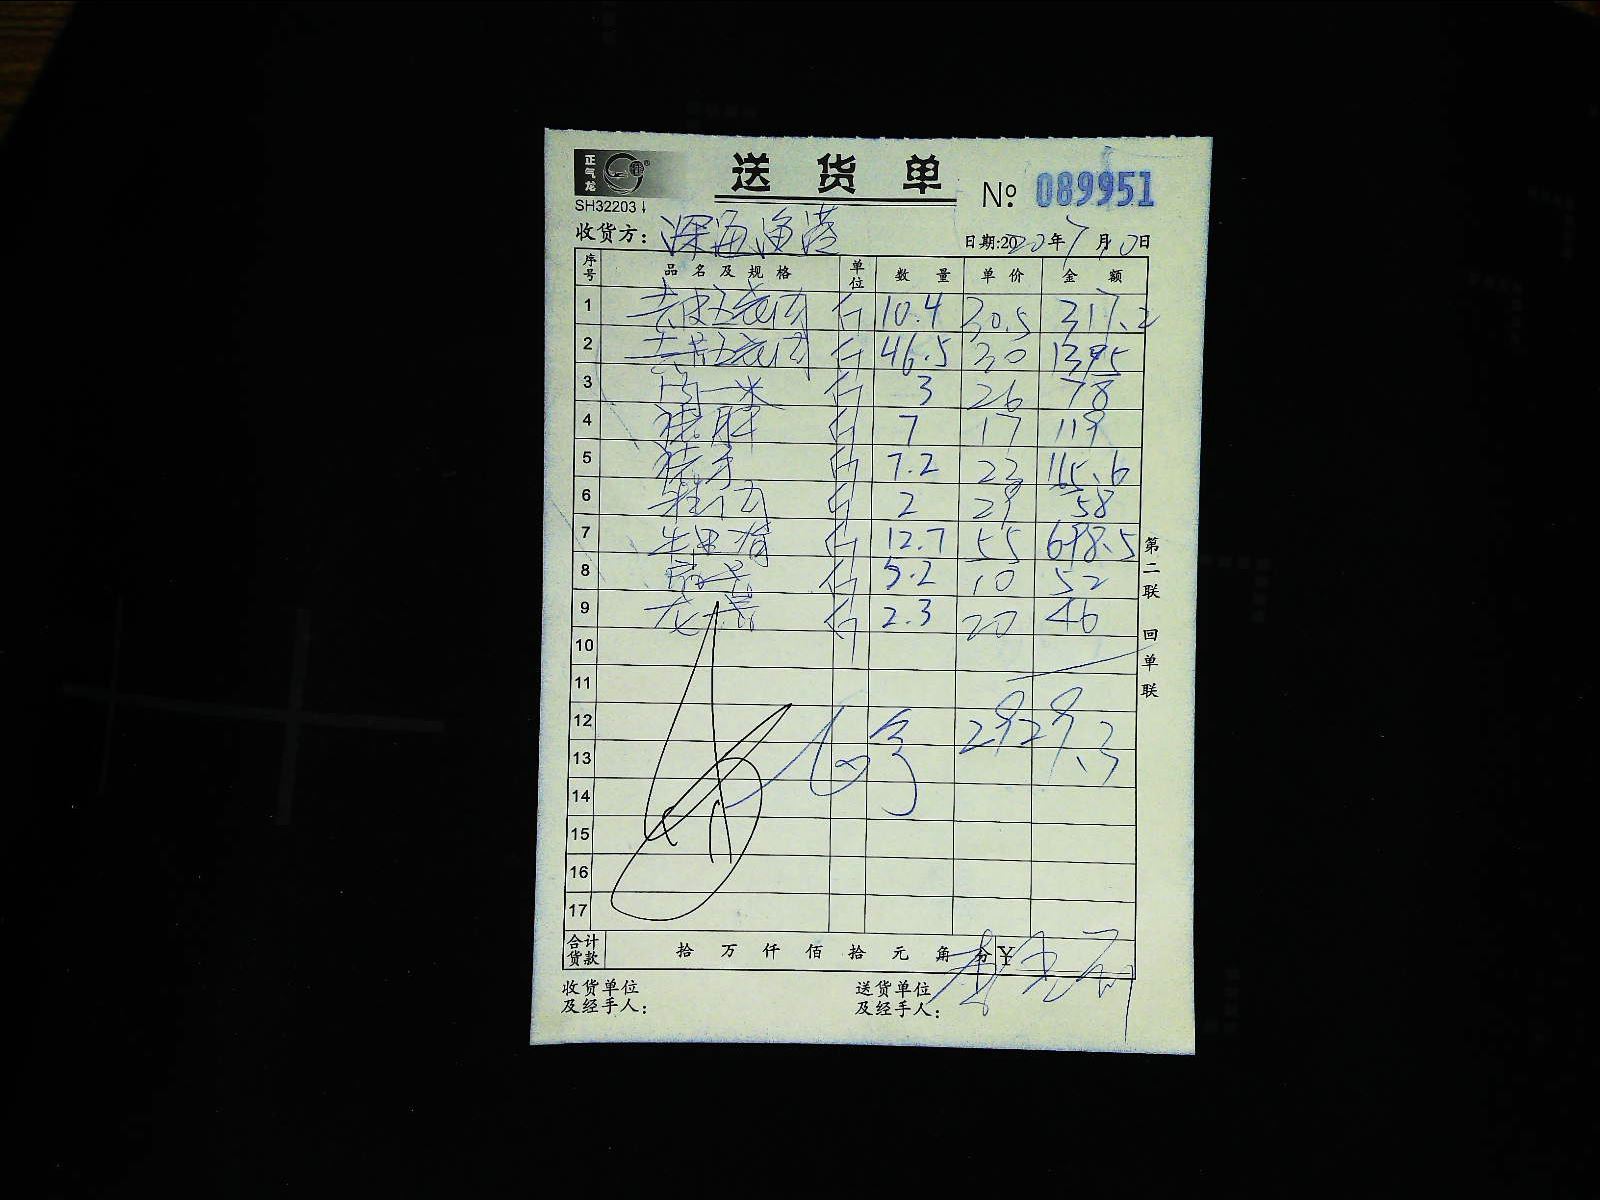 正气龙
SH32203
送货单
№ 089951
收货方: 深海渔港
日期:2020年7月10日
序号 品名及规格 单位 数量 单价 金额
1 去皮五花肉 斤 10.4 30.5 317.2
2 五花肉 斤 46.5 30 1395
3 斤 3 26 78
4 猪脚 斤 7 17 119
5 猪手 斤 7.2 23 165.6
6 斤 2 29 58
7 斤 12.7 55 698.5
8 斤 5.2 10 52
9 龙骨 斤 2.3 20 46
10
11
12 2929.3
13
14
15
16
17
合计货款 拾 万 仟 佰 拾 元 角 分 ¥
收货单位及经手人:
送货单位及经手人:
第二联 回单联